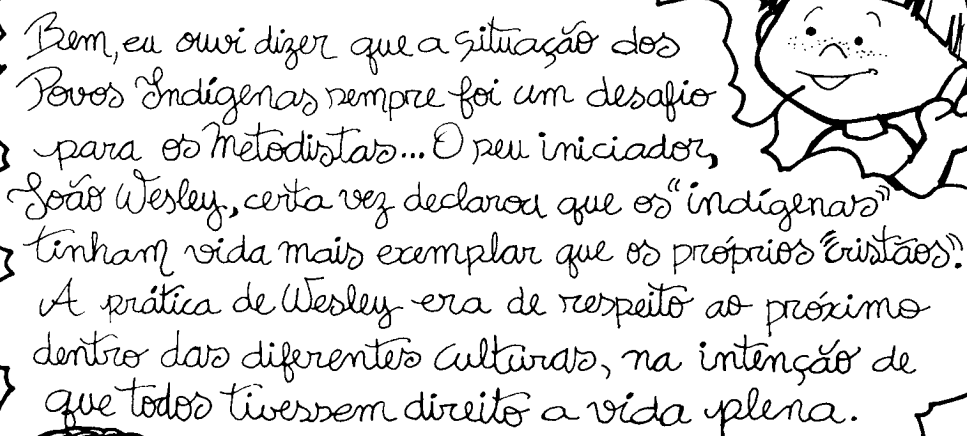 Bem, eu ouvi dizer que a situação dos
Povos Indígenas sempre foi um desafio
para os metodistas... O seu iniciador,
João Wesley, certa vez declarou que os "indígenas"
tinham vida mais exemplar que os próprios "cristãos".
A prática de Wesley era de respeito ao próximo
dentro das diferentes culturas, na intenção de
que todos tivessem direito a vida plena.